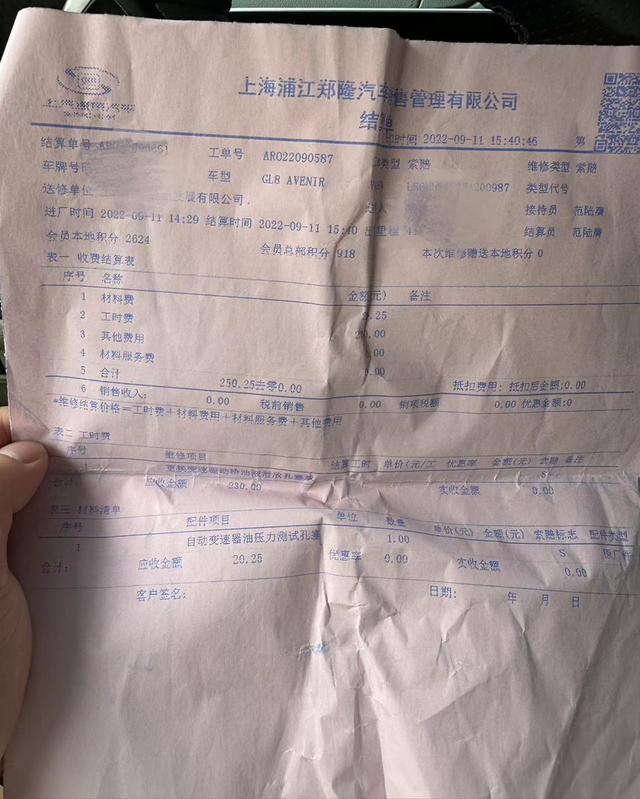 上海浦江郑隆汽车售管理有限公司
结算
时间 2022-09-11 15:40:46 第
结算单号
工单号 ARO22090587 类型 索赔 维修类型 索赔
车牌号
车型 GL8 AVENIR 200987 类型代号
送修单位 发展有限公司 接待员 范陆膺
进厂时间 2022-09-11 14:29 结算时间 2022-09-11 15:40 结算员 范陆膺
会员本地积分 2624 会员总部积分 918 本次维修赠送本地积分 0
表一 收费结算表
序号 名称 金额(元) 备注
1 材料费 .25
2 工时费 .00
3 其他费用 .00
4 材料服务费 .00
5 合计 250.25去零0.00 抵扣费用: 抵扣后金额:0.00
6 销售收入: 0.00 税前销售 0.00 销项税额 0.00 优惠金额:0
*维修结算价格=工时费+材料费用+材料服务费+其他费用
表二 工时费
序号 维修项目 结算工时 单价(元/工 优惠率 金额(元) 索赔 备注
1 S
合计: 应收金额 230.00 实收金额 0.00
表三 材料清单
序号 配件项目 单位 数量 单价(元) 金额(元) 索赔标志 配件类型
1 自动变速器油压力测试孔塞 1.00 S 原厂件
合计: 应收金额 20.25 优惠率 0.00 实收金额 0.00
客户签名: 日期: 年 月 日